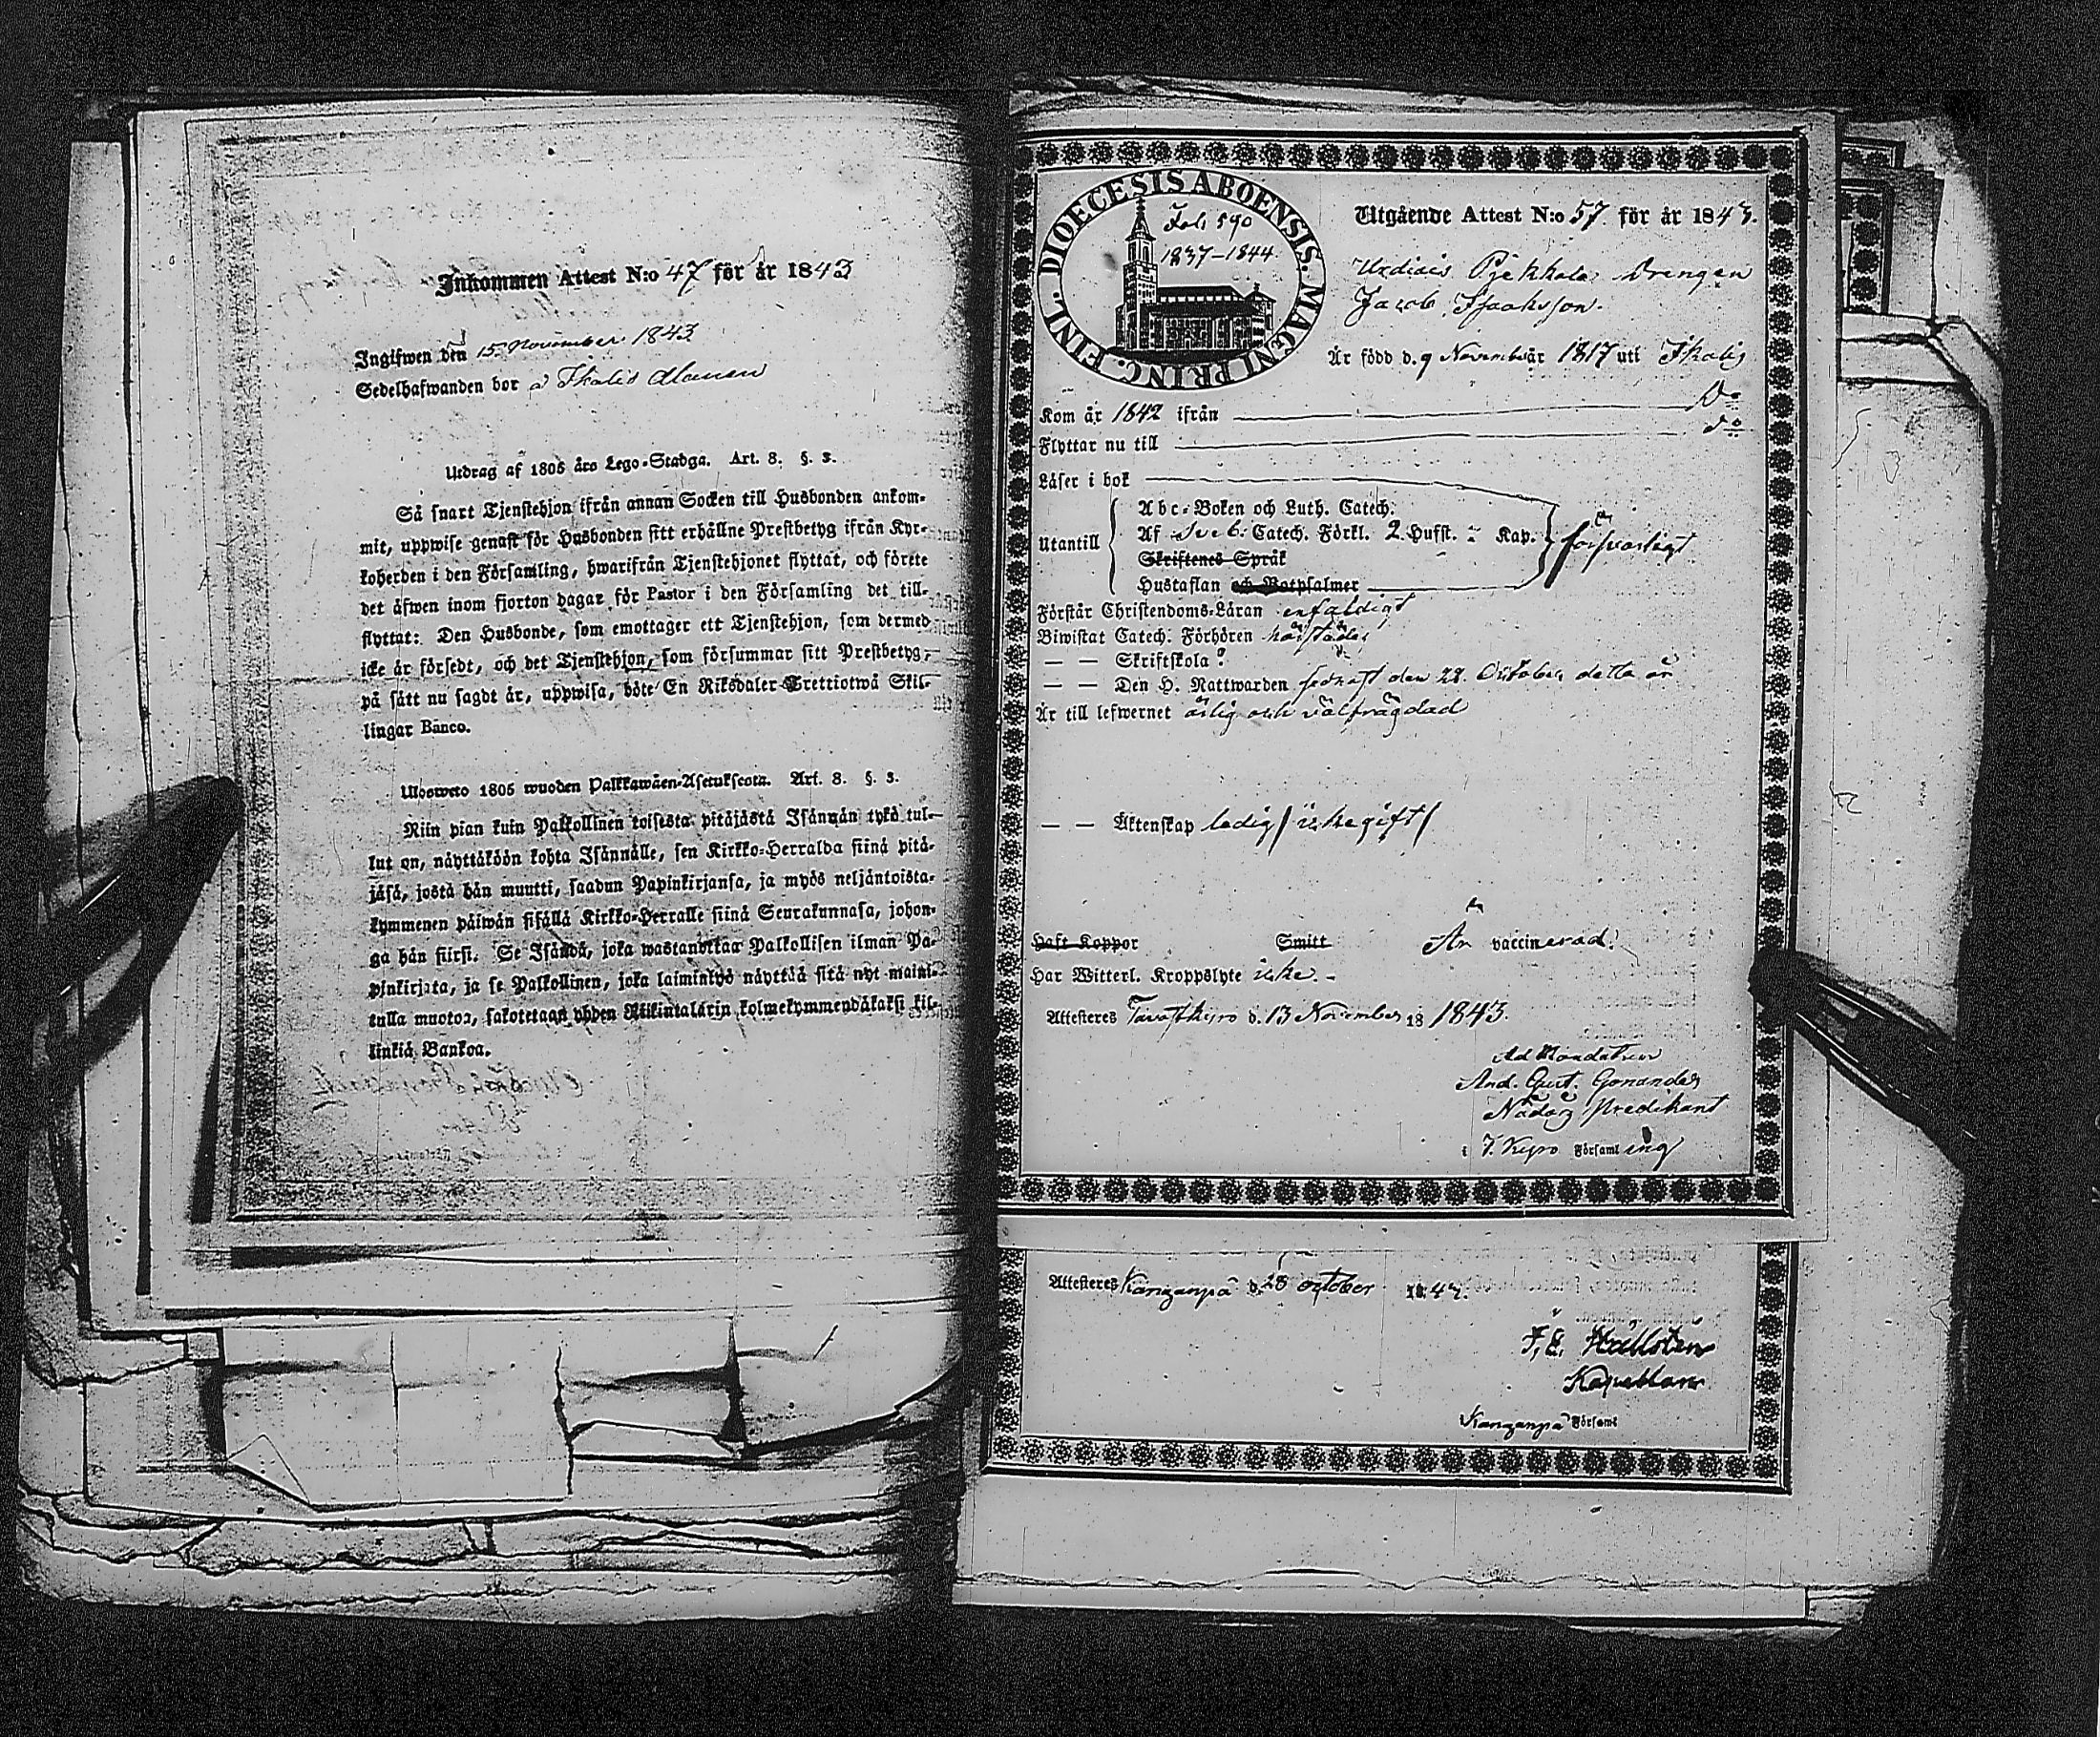 Inkommen Attest N:o 47 för år 1843
Ingifwen den 15 November 1843
Sedelhafwanden bor å Ikalis Alanen
Utdrag af 1805 års Lego-Stadga. Art. 8. §. 3.
Så snart Tjenstehjon ifrån annan Socken till Husbonden ankom-
mit, uppwise genast för Husbonden sitt erhållne Prestbetyg ifrån Kyr-
koherden i den Församling, hwarifrån Tjenstehjonet flyttat, och förete
det äfwen inom fjorton dagar för Pastor i den Församling det till-
flyttat: Den Husbonde, som emottager ett Tjenstehjon, som dermed
icke är försedt, och det Tjenstehjon, som försummar sitt Prestbetyg,
på sätt nu sagdt är, uppwisa, böte En Riksdaler Trettiotwå Skil-
lingar Banco.
Ulosweto 1805 wuoden Palkkawäen-Asetuksesta. Art. 8. §. 3.
Niin pian kuin Palkollinen toisesta pitäjästä Isännän tykö tul-
lut on, näyttäköön kohta Isännälle, sen Kirkko-Herralda siinä pitä-
jäsä, josta hän muutti, saadun Papinkirjansa, ja myös neljäntoista-
kymmenen päiwän sisällä Kirkko-Herralle siinä Seurakunnasa, johon-
ga hän siirsi. Se Isändä, joka wastanottaa Palkollisen ilman Pa-
pinkirjata, ja se Palkollinen, joka laiminlyö näyttää sitä nyt maini-
tulla muotoa, sakotetaan yhden Riikintalarin kolmekymmendäkaksi kil-
linkiä Bankoa.
DIOECESIS ABOENSIS. MAGNI PRINC. FINL.
Fol. 590
1837-1844
Utgående Attest N:o 57 för år 1843.
Pjekkala Drengen
Jacob Isaaksson.
Är född d. 9 November år 1817 uti Ikalis
Kom år 1842 ifrån Do
Flyttar nu till do
Läser i bok
Utantill
Abc-Boken och Luth. Catech.
Af Sveb: Catech. Förkl. 2 Hufst. Kap.
Skriftenes Språk
Hustaflan och Botpsalmer
försvarligt
Förstår Christendoms-Läran enfaldigt
Biwistat Catech. Förhören härstädes
— — Skriftskola
— — Den H. Nattwarden sednast den 22. October detta år
Är till lefwernet ärlig och välfrägdad
— — Äktenskap ledig / icke gift /
Haft Koppor Smitt Är vaccinerad.
Har Witterl. Kroppslyte icke.
Attesteres Tavastkyro d. 13 November 18 1843.
Ad Mandatum
And. Gust. Gonander
Nådårs Predikant
i T. Kyro Församling
Attesteres Kanganpä d. 28 october 1843.
F. E. Hällsten
Kapellan
Kanganpä Församl